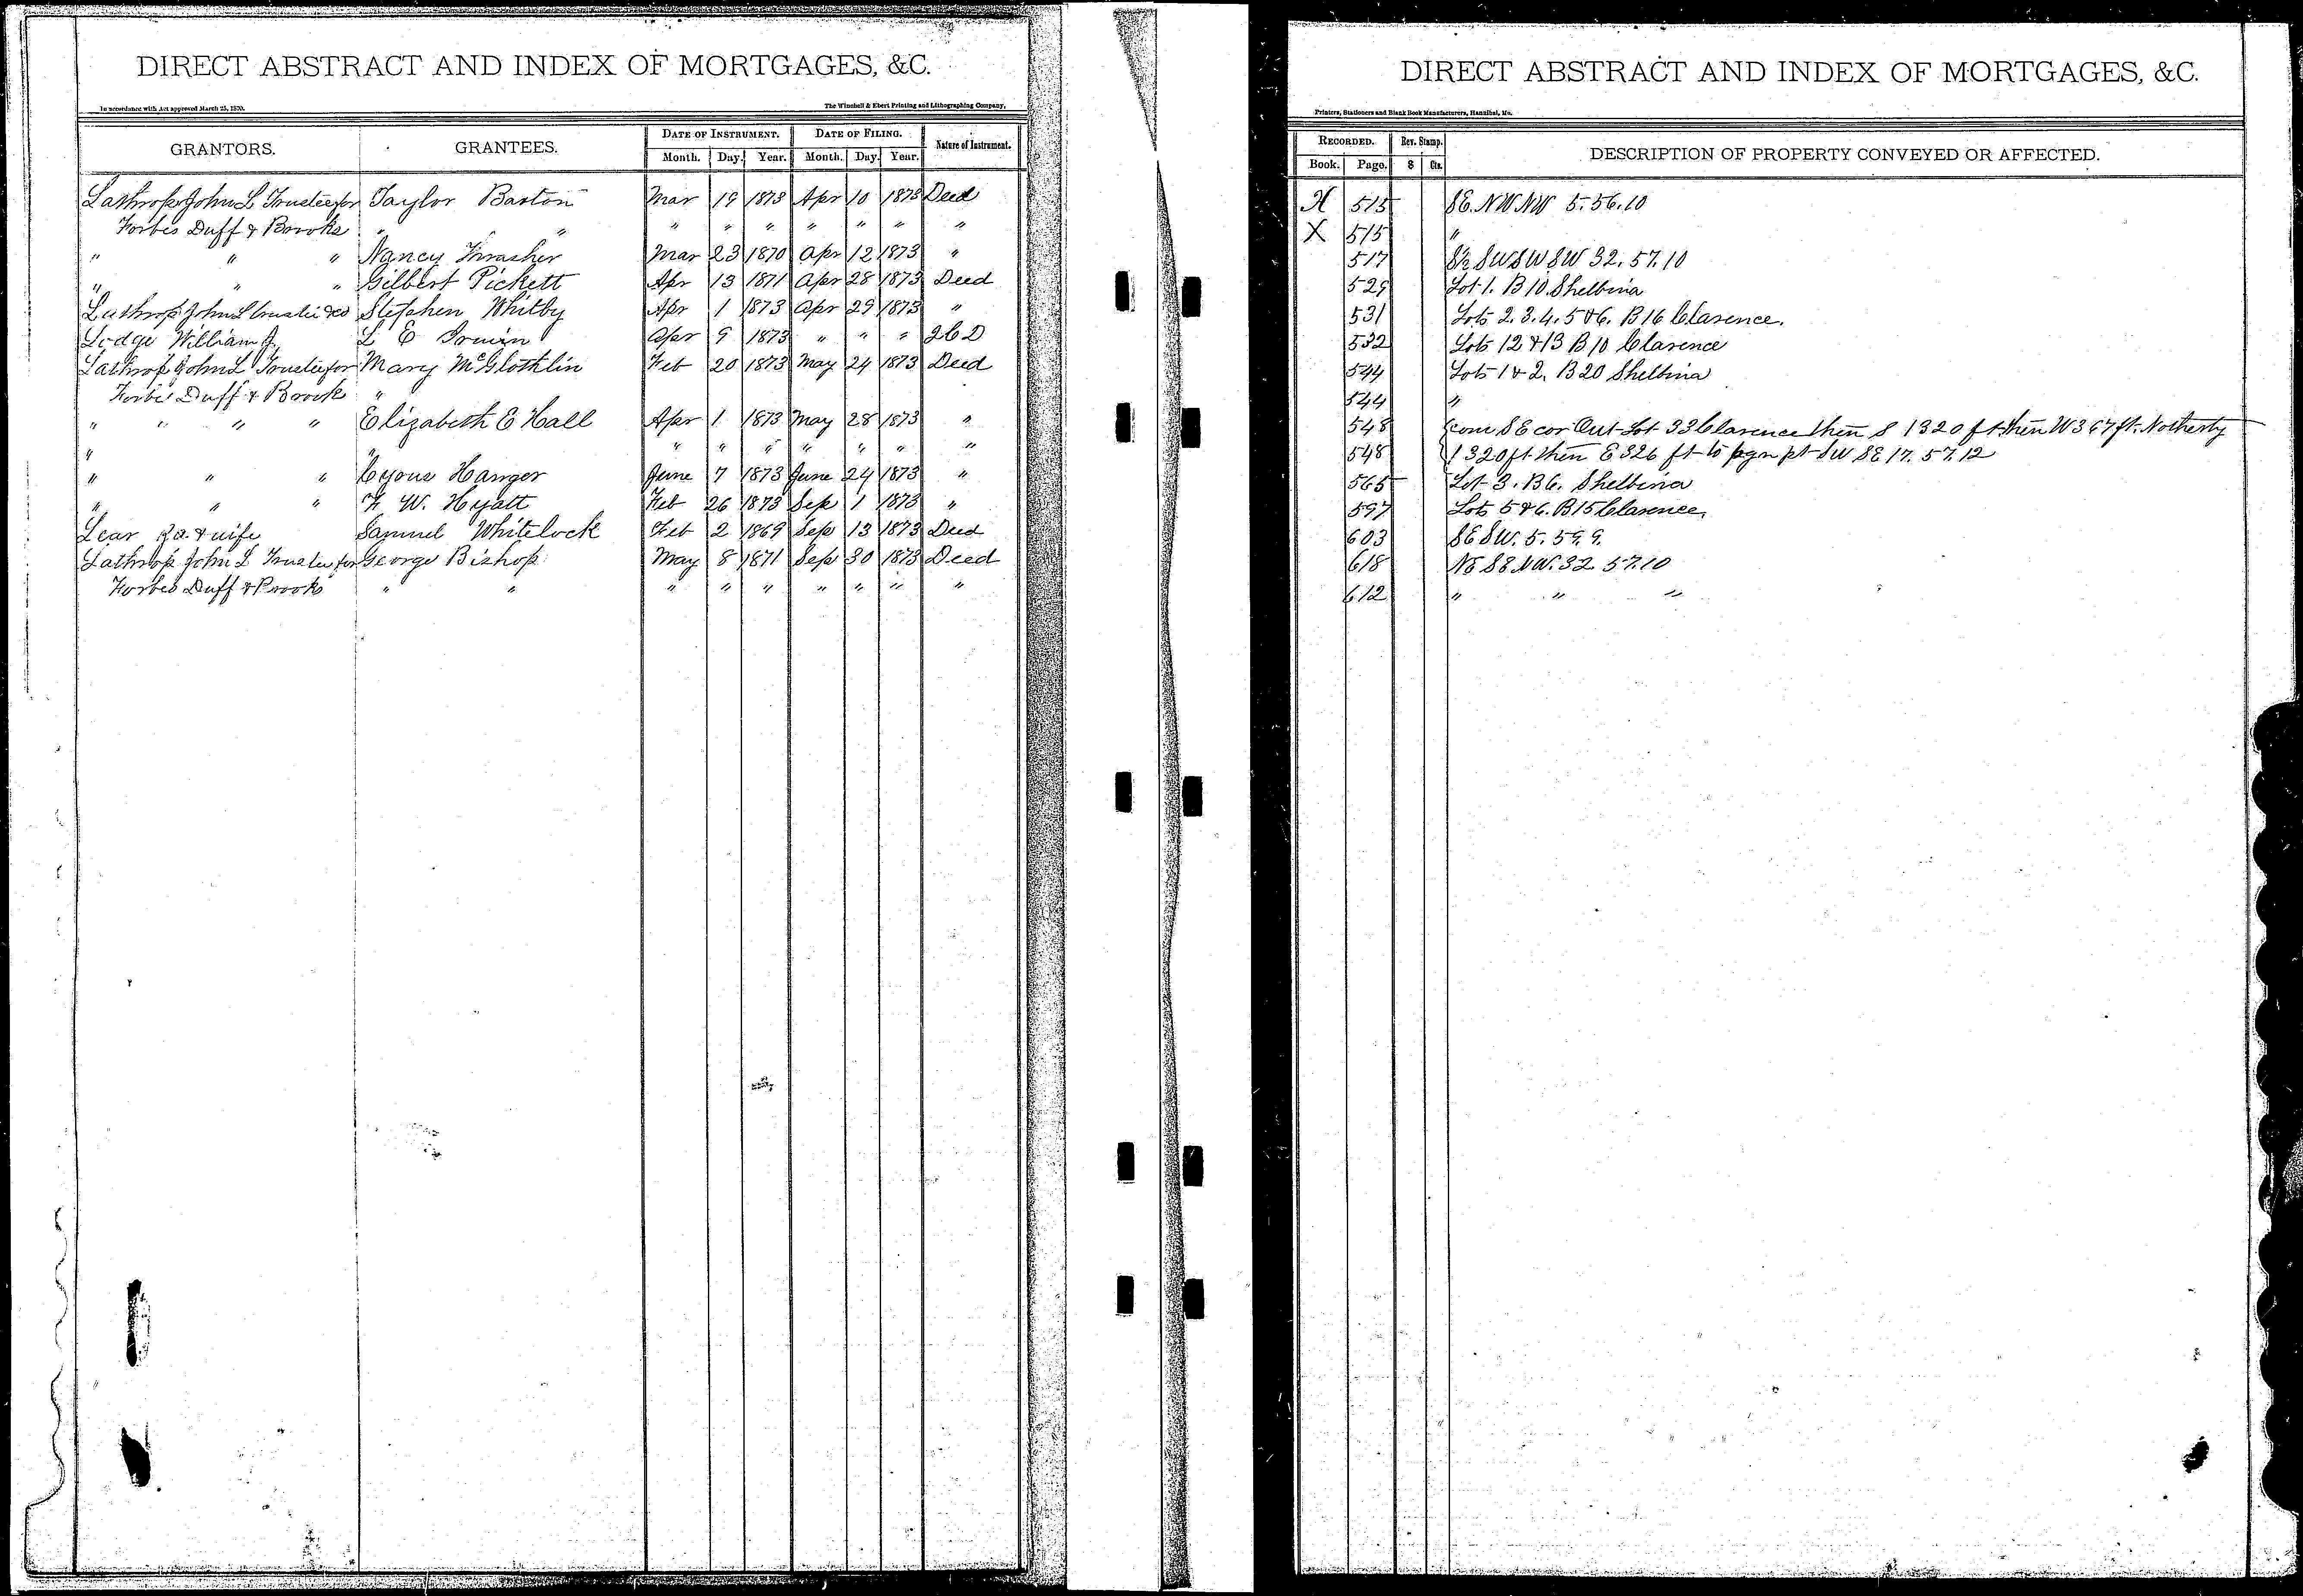 DIRECT ABSTRACT AND INDEX OF MORTGAGES, &C.
In accordance with Act approved March 25, 1870.
The Winchell & Ebert Printing and Lithographing Company,
GRANTORS. GRANTEES. DATE OF INSTRUMENT. DATE OF FILING. Nature of Instrument.
Month. Day. Year. Month. Day. Year.
Lathrop John L Trustee for Taylor Barton Mar 19 1873 Apr 10 1873 Deed
Forbes Duff & Brooks " " " " " " " " "
" " " Nancy Thrasher Mar 23 1870 Apr 12 1873 "
" " " Gilbert Pickett Apr 13 1871 Apr 28 1873 Deed
Lathrop John L trustee &co Stephen Whitby Apr 1 1873 Apr 29 1873 "
Lodge William J. L E Irwin Apr 9 1873 " " " 2CD
Lathrop John L Trustee for Mary McGlothlin Feb 20 1873 May 24 1873 Deed
Forbes Duff & Brook "
" " " " Elizabeth E Hall Apr 1 1873 May 28 1873 "
" " " " " " " " "
" " " Cyous Hanger June 7 1873 June 24 1873 "
" " " F W. Hyatt Feb 26 1873 Sep 1 1873 "
Lear & wife Samuel Whitelock Feb 2 1869 Sep 13 1873 Deed
Lathrop John L Trustee for George Bishop May 8 1871 Sep 30 1873 Deed
Forbes Duff & Brooks " " " " " " " " "
DIRECT ABSTRACT AND INDEX OF MORTGAGES, &C.
Printers, Stationers and Blank Book Manufacturers, Hannibal, Mo.
RECORDED. Rev. Stamp. DESCRIPTION OF PROPERTY CONVEYED OR AFFECTED.
Book. Page. $ Cts.
X 515 SE. NW NW 5.56.10
X 515 "
517 S½ SW SW SW 32.57.10
529 Lot 1. B 10 Shelbina
531 Lots 2.3.4.5&6. B 16 Clarence.
532 Lots 12 & 13 B 10 Clarence
544 Lots 1 & 2. B 20 Shelbina
544 "
548 Com SE cor Out Lot 33 Clarence then S 1320 ft then W 367 ft. Notherly
548 1320 ft then E 326 ft to pt SW SE 17.57.12
565 Lot 3. B 6. Shelbina
597 Lots 5 & 6. B 15 Clarence.
603 SE SW. 5. 59.9.
618 NE SE NW. 32. 57.10
612 " " "